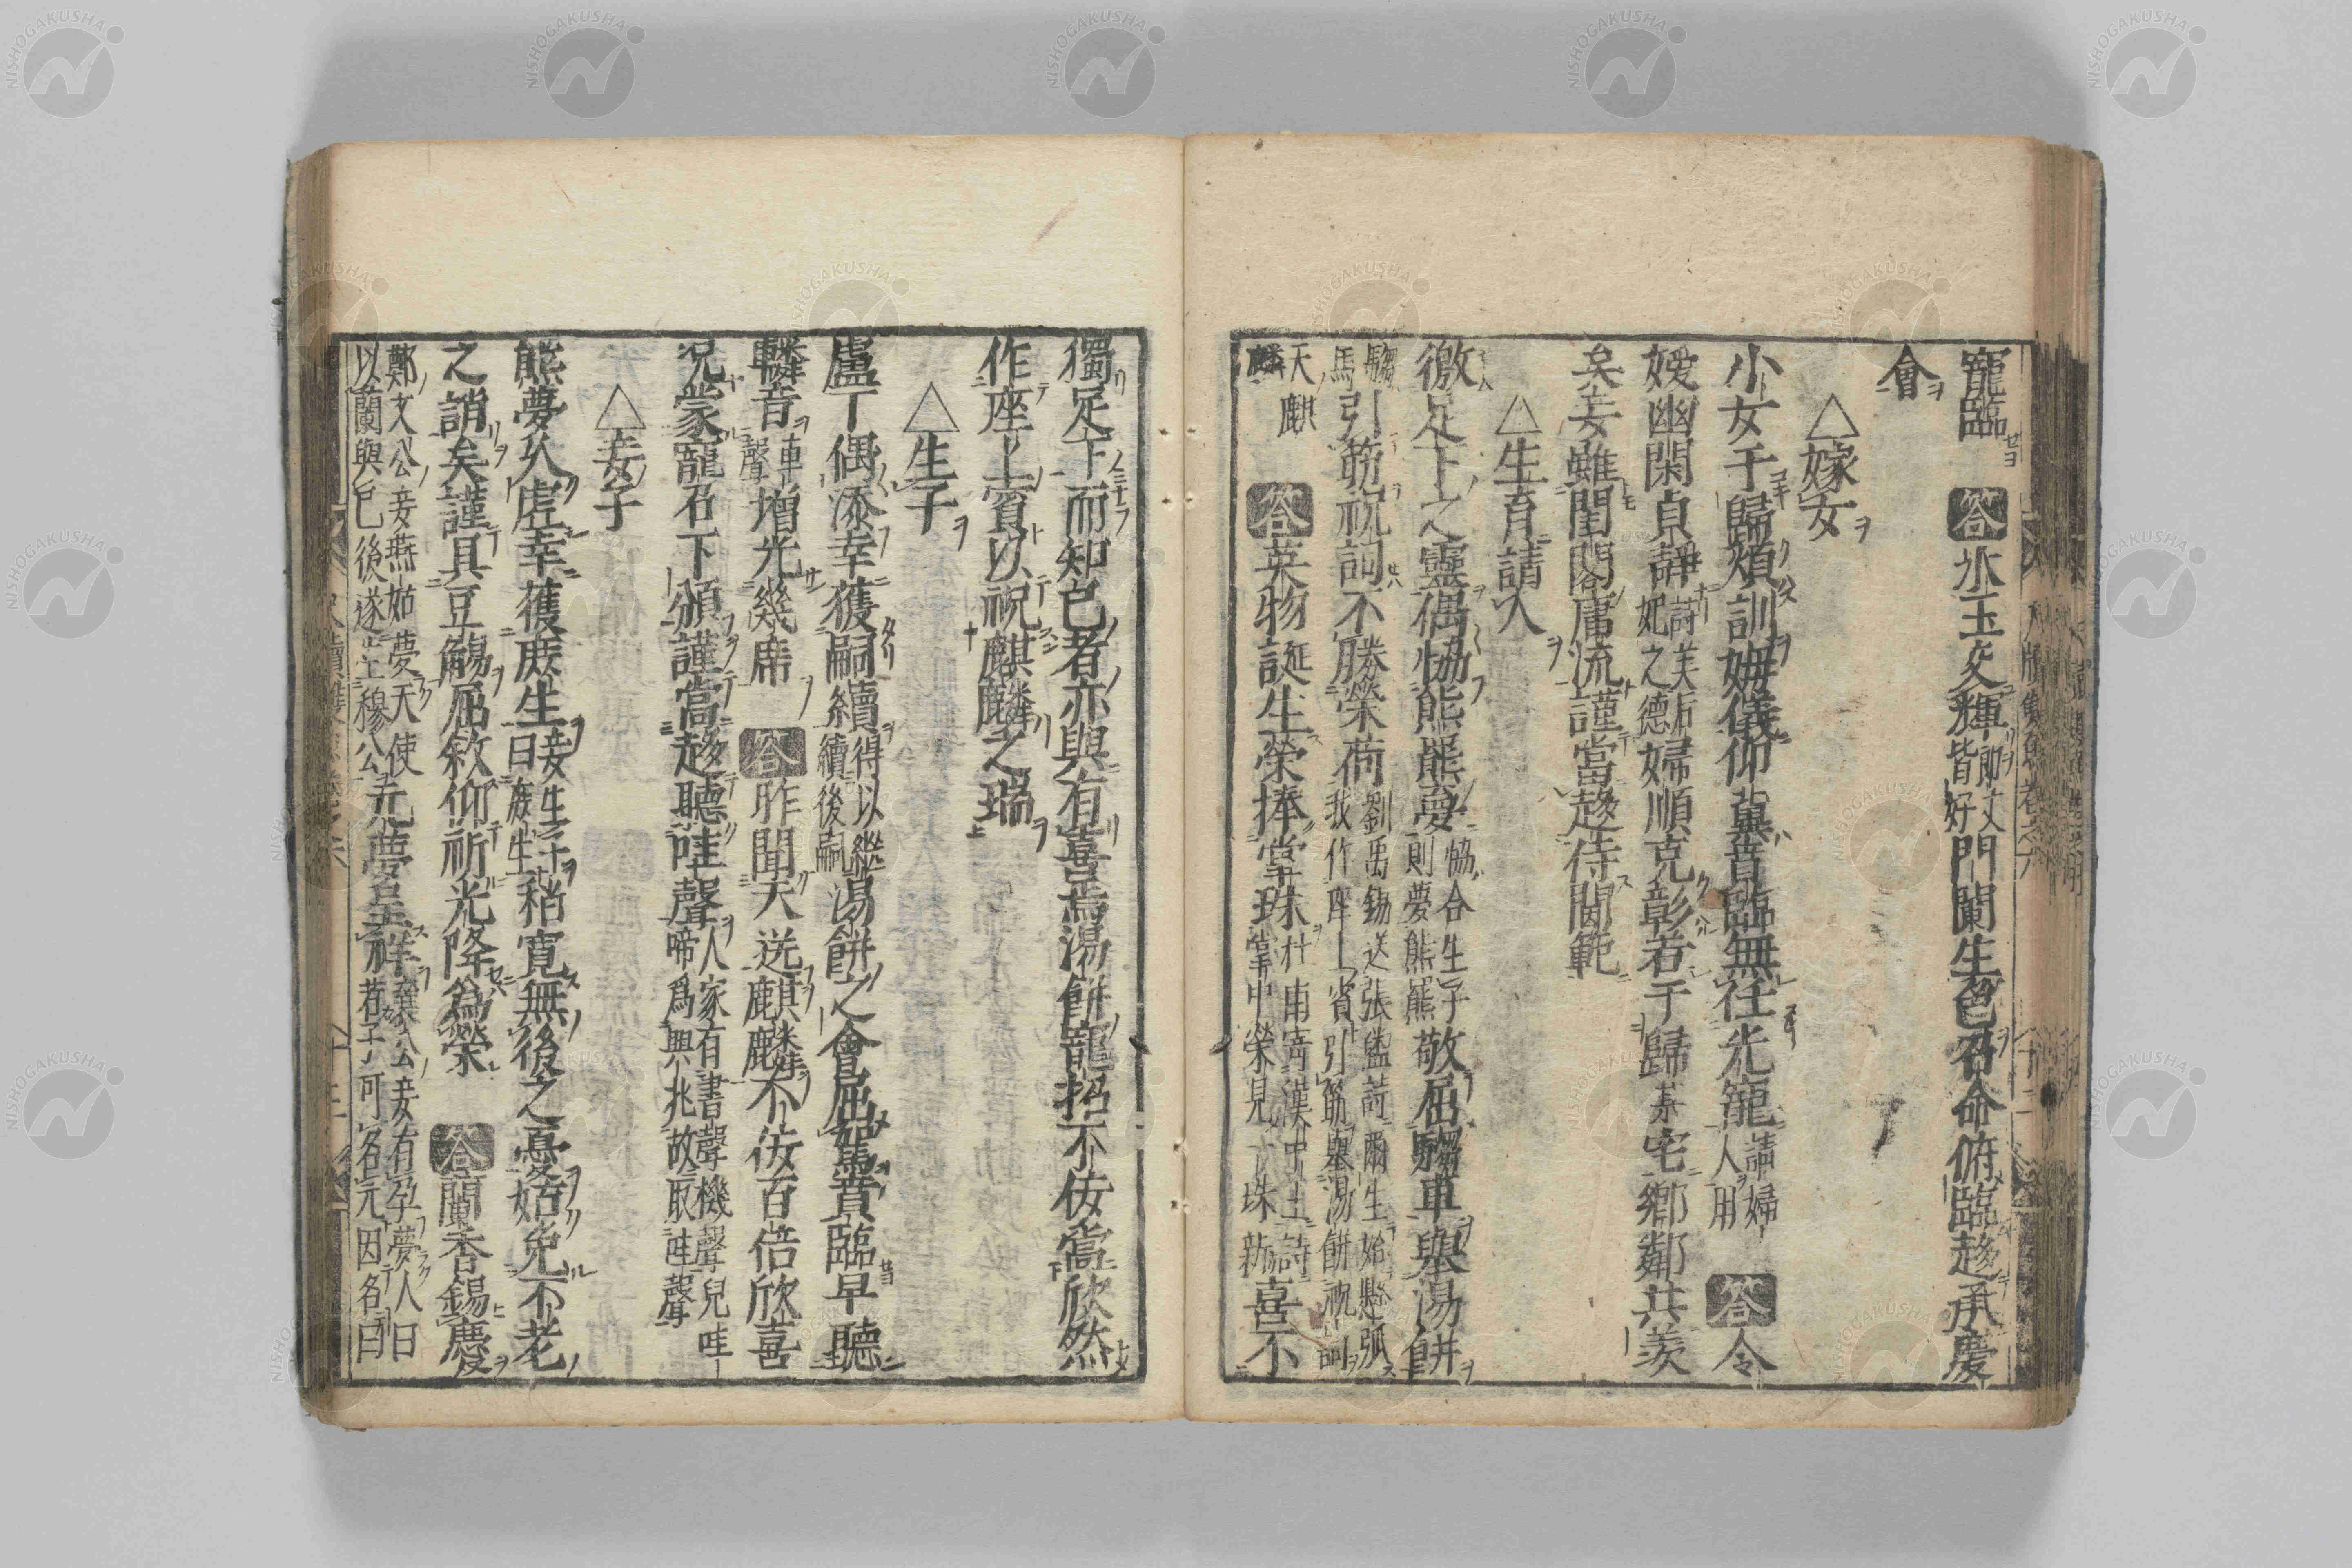 寵臨 答 氷玉交輝 即丈皆好 門闌生色召命俯臨趍承慶
會
△嫁女
小女于歸煩訓姆儀仰冀音臨無任光寵 請婦人用 答 令
嫒幽閑貞靜 詩美后妃之德 婦順克彰者于歸 宅鄉鄰共羨
矣妾雖閨閤庸流謹當趍侍閫範
△生育請人
徼足下之靈偶恊熊羆夢 恊合生子則夢熊羆 敬屈騶車舉湯餅
引筯祝詞不勝榮荷 劉禹錫送張盥詩爾生始懸弧我作座上賓引筯舉湯餅祝詞
天麒麟 答 英物誕生榮捧掌珠 杜甫寄漢中王詩掌中榮見一珠新 喜不
獨足下而知己者亦與有喜焉湯餅寵招不佞當欣然
作座上賓以祝麒麟之瑞
△生子
盧下偶添幸獲嗣續 得以繼續後嗣 湯餅之會屈駕賁臨早聽
轔音 車聲 增光幾席 答 昨聞天送麒麟不佞百倍欣喜
况蒙寵召下頒謹當趍聽啀聲
△妾子
熊夢久虛幸獲庶生 妾生子曰庶生 稍寬無後之憂姑免不老
之誚矣謹具豆觴屈敘仰祈光降為榮 答 闌香錫慶
鄭文公妾燕姞夢天使以蘭與己後遂生穆公 元夢呈祥